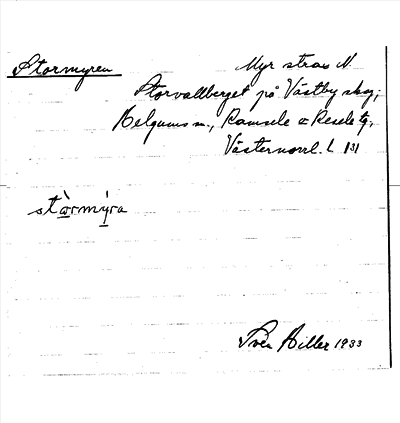 Stormyren
Myr strax N
Storvallberget på Västby skog;
Helgums sn., Ramsele o Resele tg,
Västernorrl. L 131
stàrmýra
Sven Hiller 1933